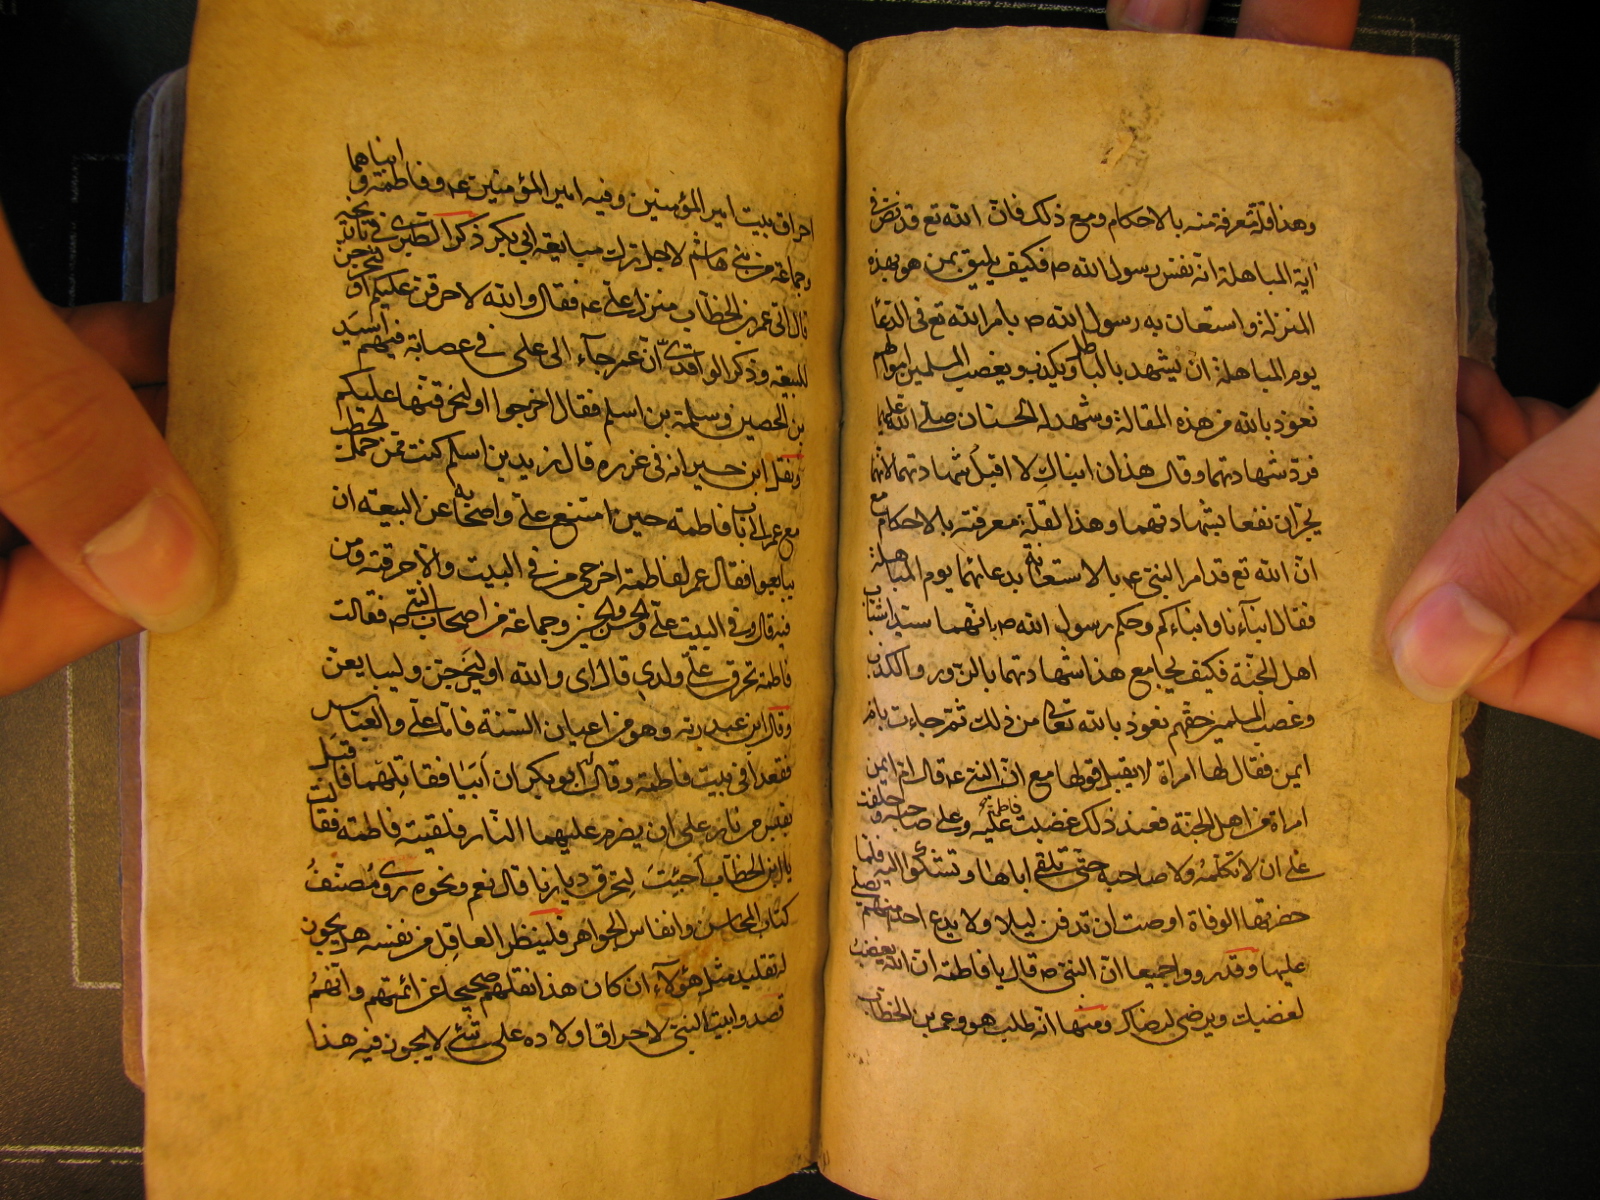 وهذا قلة معرفة منه بالاحكام ومع ذلك فان الله تع قد نص في
اية المباهلة انه نفس رسول الله ص فكيف يليق بمن هو بهذه
المنزلة واستعان به رسول الله ص بامر الله تع في الدعاء
يوم المباهلة ان يشهد بالباطل ويكذب ويغصب المسلمين اموالهم
نعوذ بالله من هذه المقالة وشهد لها الحسنان صلى الله عليهما
فرد شهادتهما وقال هذان ابناك لا اقبل شهادتهما لانهما
يجران نفعا بشهادتهما وهذا لقلة معرفته بالاحكام مع
ان الله تع قد امر النبي ع بالاستعانة بدعائهما يوم المباهلة
فقال ابناءنا وابناءكم وحكم رسول الله ص بانهما سيدا شباب
اهل الجنة فكيف يجامع هذا شهادتهما بالزور والكذب
وغصب المسلمين حقهم نعوذ بالله تعالى من ذلك ثم جاءت بام
ايمن فقال لها امراة لا يقبل قولها مع ان النبي ع قال ام ايمن
امراة من اهل الجنة فعند ذلك غضبت فاطمة عليه وعلى صاحبه وحلفت
على ان لا تكلمه ولا صاحبه حتى تلقى اباها وتشكوا اليه فلما
حضرتها الوفاة اوصت ان تدفن ليلا ولا يدع احد منهم يصلي
عليها وقد رووا جميعا ان النبي ص قال يا فاطمة ان الله يغضب
لغضبك ويرضى لرضاك ومنها انه طلب هو وعمر بن الخطاب
احراق بيت امير المؤمنين وفيه امير المؤمنين ع وفاطمة وابناهما
وجماعة من بني هاشم لاجل ترك مبايعة ابي بكر ذكر الطبري في تاريخه
قال اتى عمر بن الخطاب منزل علي ع فقال والله لاحرقن عليكم او لتخرجن
للبيعة وذكر الواقدي ان عمر جاء الى علي في عصابة فيهم اسيد
بن الحصين وسلمة بن اسلم فقال اخرجوا او لنحرقنها عليكم
ونقل ابن خيرانه في غرره قال زيد بن اسلم كنت ممن حمل الحطب
مع عمر الى باب فاطمة حين امتنع علي واصحابه عن البيعة ان
يبايعوا فقال عمر لفاطمة اخرجي من في البيت والا احرقته ومن
فيه قال وفي البيت علي والحسن والحسين وجماعة من اصحاب النبي ص فقالت
فاطمة تحرق علي ولدي قال اى والله او ليخرجن وليبايعن
وقال ابن عبد ربه وهو من اعيان السنة فاما علي والعباس
فقعدا في بيت فاطمة وقال له ابو بكر ان ابيا فقاتلهما فاقبل
بقبس من نار على ان يضرم عليهما النار فلقيته فاطمة فقالت
يا ابن الخطاب اجئت لتحرق ديارنا قال نعم ونحوه روى مصنف
كتاب المحاسن وانفاس الجواهر فلينظر العاقل من نفسه هل يجوز
له تقليد مثل هؤلاء ان كان هذا نقلهم صحيحا عن ائمتهم وانهم
قصدوا بيت النبي لاحراق اولاده على شئ لا يجوز فيه هذا